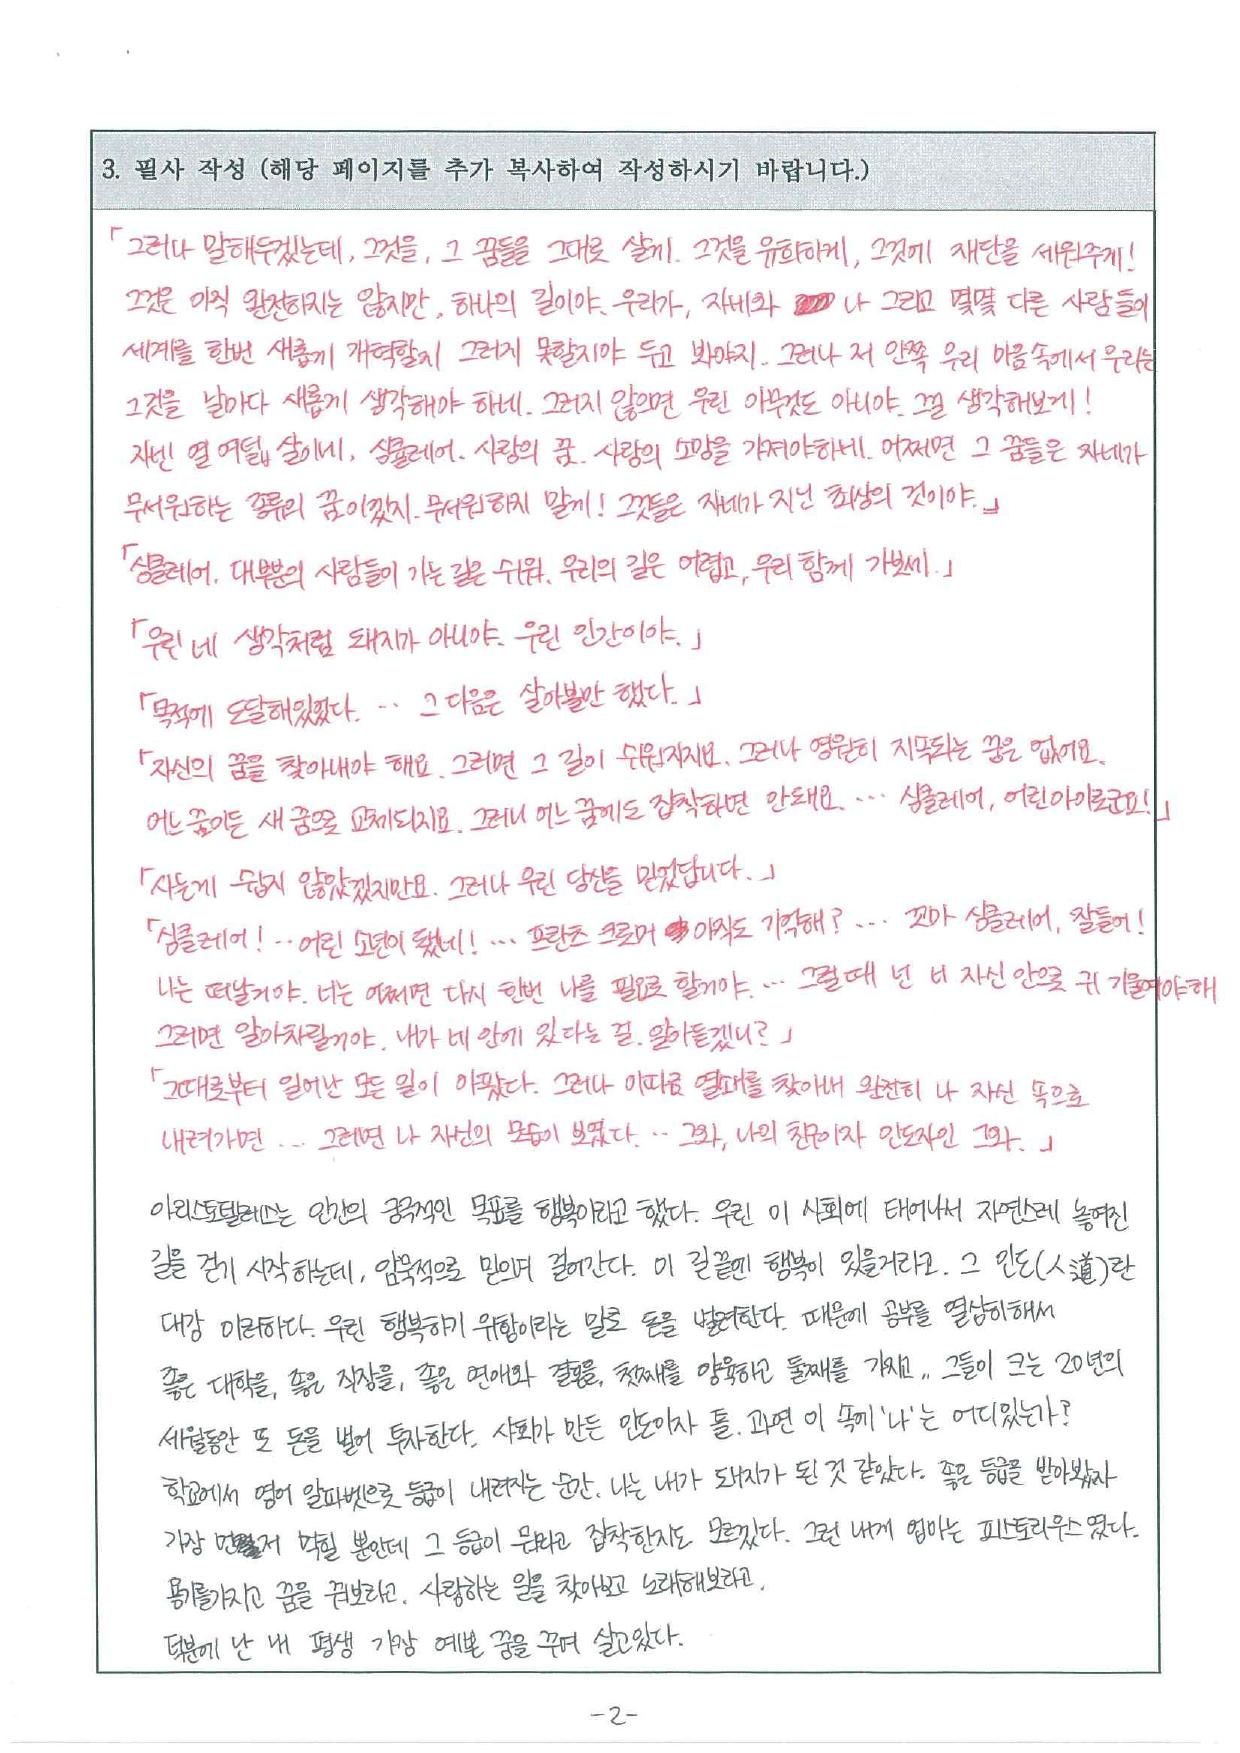 3. 필사 작성 (해당 페이지를 추가 복사하여 작성하시기 바랍니다.)
「그러나 말해두겠는데, 그것을, 그 꿈들을 그대로 살게. 그것을 유희하게, 그것에 재단을 세워주게!
그것은 아직 완전하지는 않지만, 하나의 길이야. 우리가, 자네와 나 그리고 몇몇 다른 사람들이
세계를 한번 새롭게 개혁할지 그러지 못할지야 두고 봐야지. 그러나 저 안쪽 우리 마음속에서 우리는
그것을 날마다 새롭게 생각해야 하네. 그러지 않으면 우린 아무것도 아니야. 그걸 생각해보게!
자넨 열 여덟 살이네, 싱클레어. 사랑의 꿈. 사랑의 소망을 가져야하네. 어쩌면 그 꿈들은 자네가
무서워하는 종류의 꿈이겠지. 무서워하지 말게! 그것들은 자네가 지닌 최상의 것이야.」
「싱클레어. 대부분의 사람들이 가는 길은 쉬워. 우리의 길은 어렵고, 우리 함께 가보세.」
「우린 네 생각처럼 돼지가 아니야. 우린 인간이야.」
「목적에 도달해있었다. ‥ 그 다음은 살아볼만 했다.」
「자신의 꿈을 찾아내야 해요. 그러면 그 길이 쉬워지지요. 그러나 영원히 지속되는 꿈은 없어요.
어느 꿈이든 새 꿈으로 교체되지요. 그러니 어느 꿈에도 집착하면 안돼요. … 싱클레어, 어린아이로군요!」
「사는게 쉽지 않았겠지만요. 그러나 우린 당신을 믿었답니다.」
「싱클레어! ‥ 어린 소년이 됐네! … 프란츠 크로머 아직도 기억해? … 꼬마 싱클레어, 잘들어!
나는 떠날거야. 너는 어쩌면 다시 한번 나를 필요로 할거야. … 그럴때 넌 너 자신 안으로 귀 기울여야해
그러면 알아차릴거야. 내가 네 안에 있다는 걸. 알아듣겠니?」
「그때로부터 일어난 모든 일이 아팠다. 그러나 이따금 열쇠를 찾아내 완전히 나 자신 속으로
내려가면 … 그러면 나 자신의 모습이 보였다. ‥ 그와, 나의 친구이자 인도자인 그와.」
아리스토텔레스는 인간의 궁극적인 목표를 행복이라고 했다. 우린 이 사회에 태어나서 자연스레 놓여진
길을 걷기 시작하는데, 암묵적으로 믿으며 걸어간다. 이 길끝엔 행복이 있을거라고. 그 인도(人道)란
대강 이러하다. 우린 행복하기 위함이라는 말로 돈을 벌려한다. 때문에 공부를 열심히해서
좋은 대학을, 좋은 직장을, 좋은 연애와 결혼을, 첫째를 양육하고 둘째를 가지고,, 그들이 크는 20년의
세월동안 또 돈을 벌어 투자한다. 사회가 만든 인도이자 틀. 과연 이 속에 '나'는 어디있는가?
학교에서 영어 알파벳으로 등급이 내려지는 순간, 나는 내가 돼지가 된 것 같았다. 좋은 등급을 받아봤자
가장 먼저 먹힐 뿐인데 그 등급이 뭐라고 집착한지도 모르겠다. 그런 내게 엄마는 피스토리우스였다.
용기를가지고 꿈을 꿔보라고. 사랑하는 일을 찾아보고 노래해보라고.
덕분에 난 내 평생 가장 예쁜 꿈을 꾸며 살고있다.
-2-